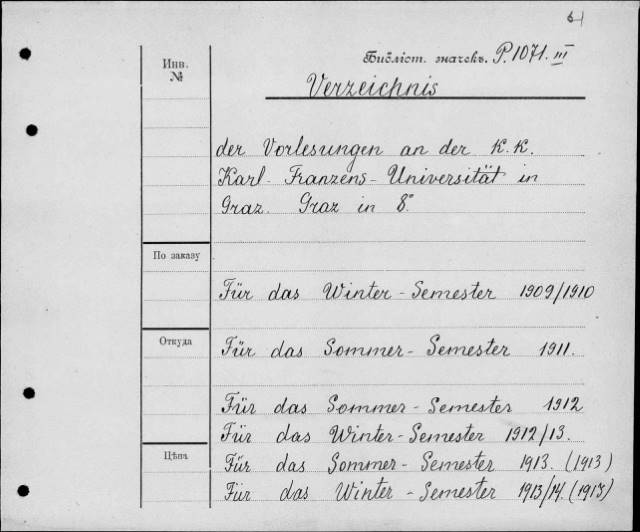 6
Инв. №
Библіот. значекъ. P. 1071. III
Verzeichnis
der Vorlesungen an der K. K.
Karl-Franzens-Universität in
Graz. Graz in 8°.
По заказу
Für das Winter-Semester 1909/1910
Откуда
Für das Sommer-Semester 1911.
Für das Sommer-Semester 1912
Für das Winter-Semester 1912/13.
Цѣна
Für das Sommer-Semester 1913. (1913)
Für das Winter-Semester 1913/14. (1913)